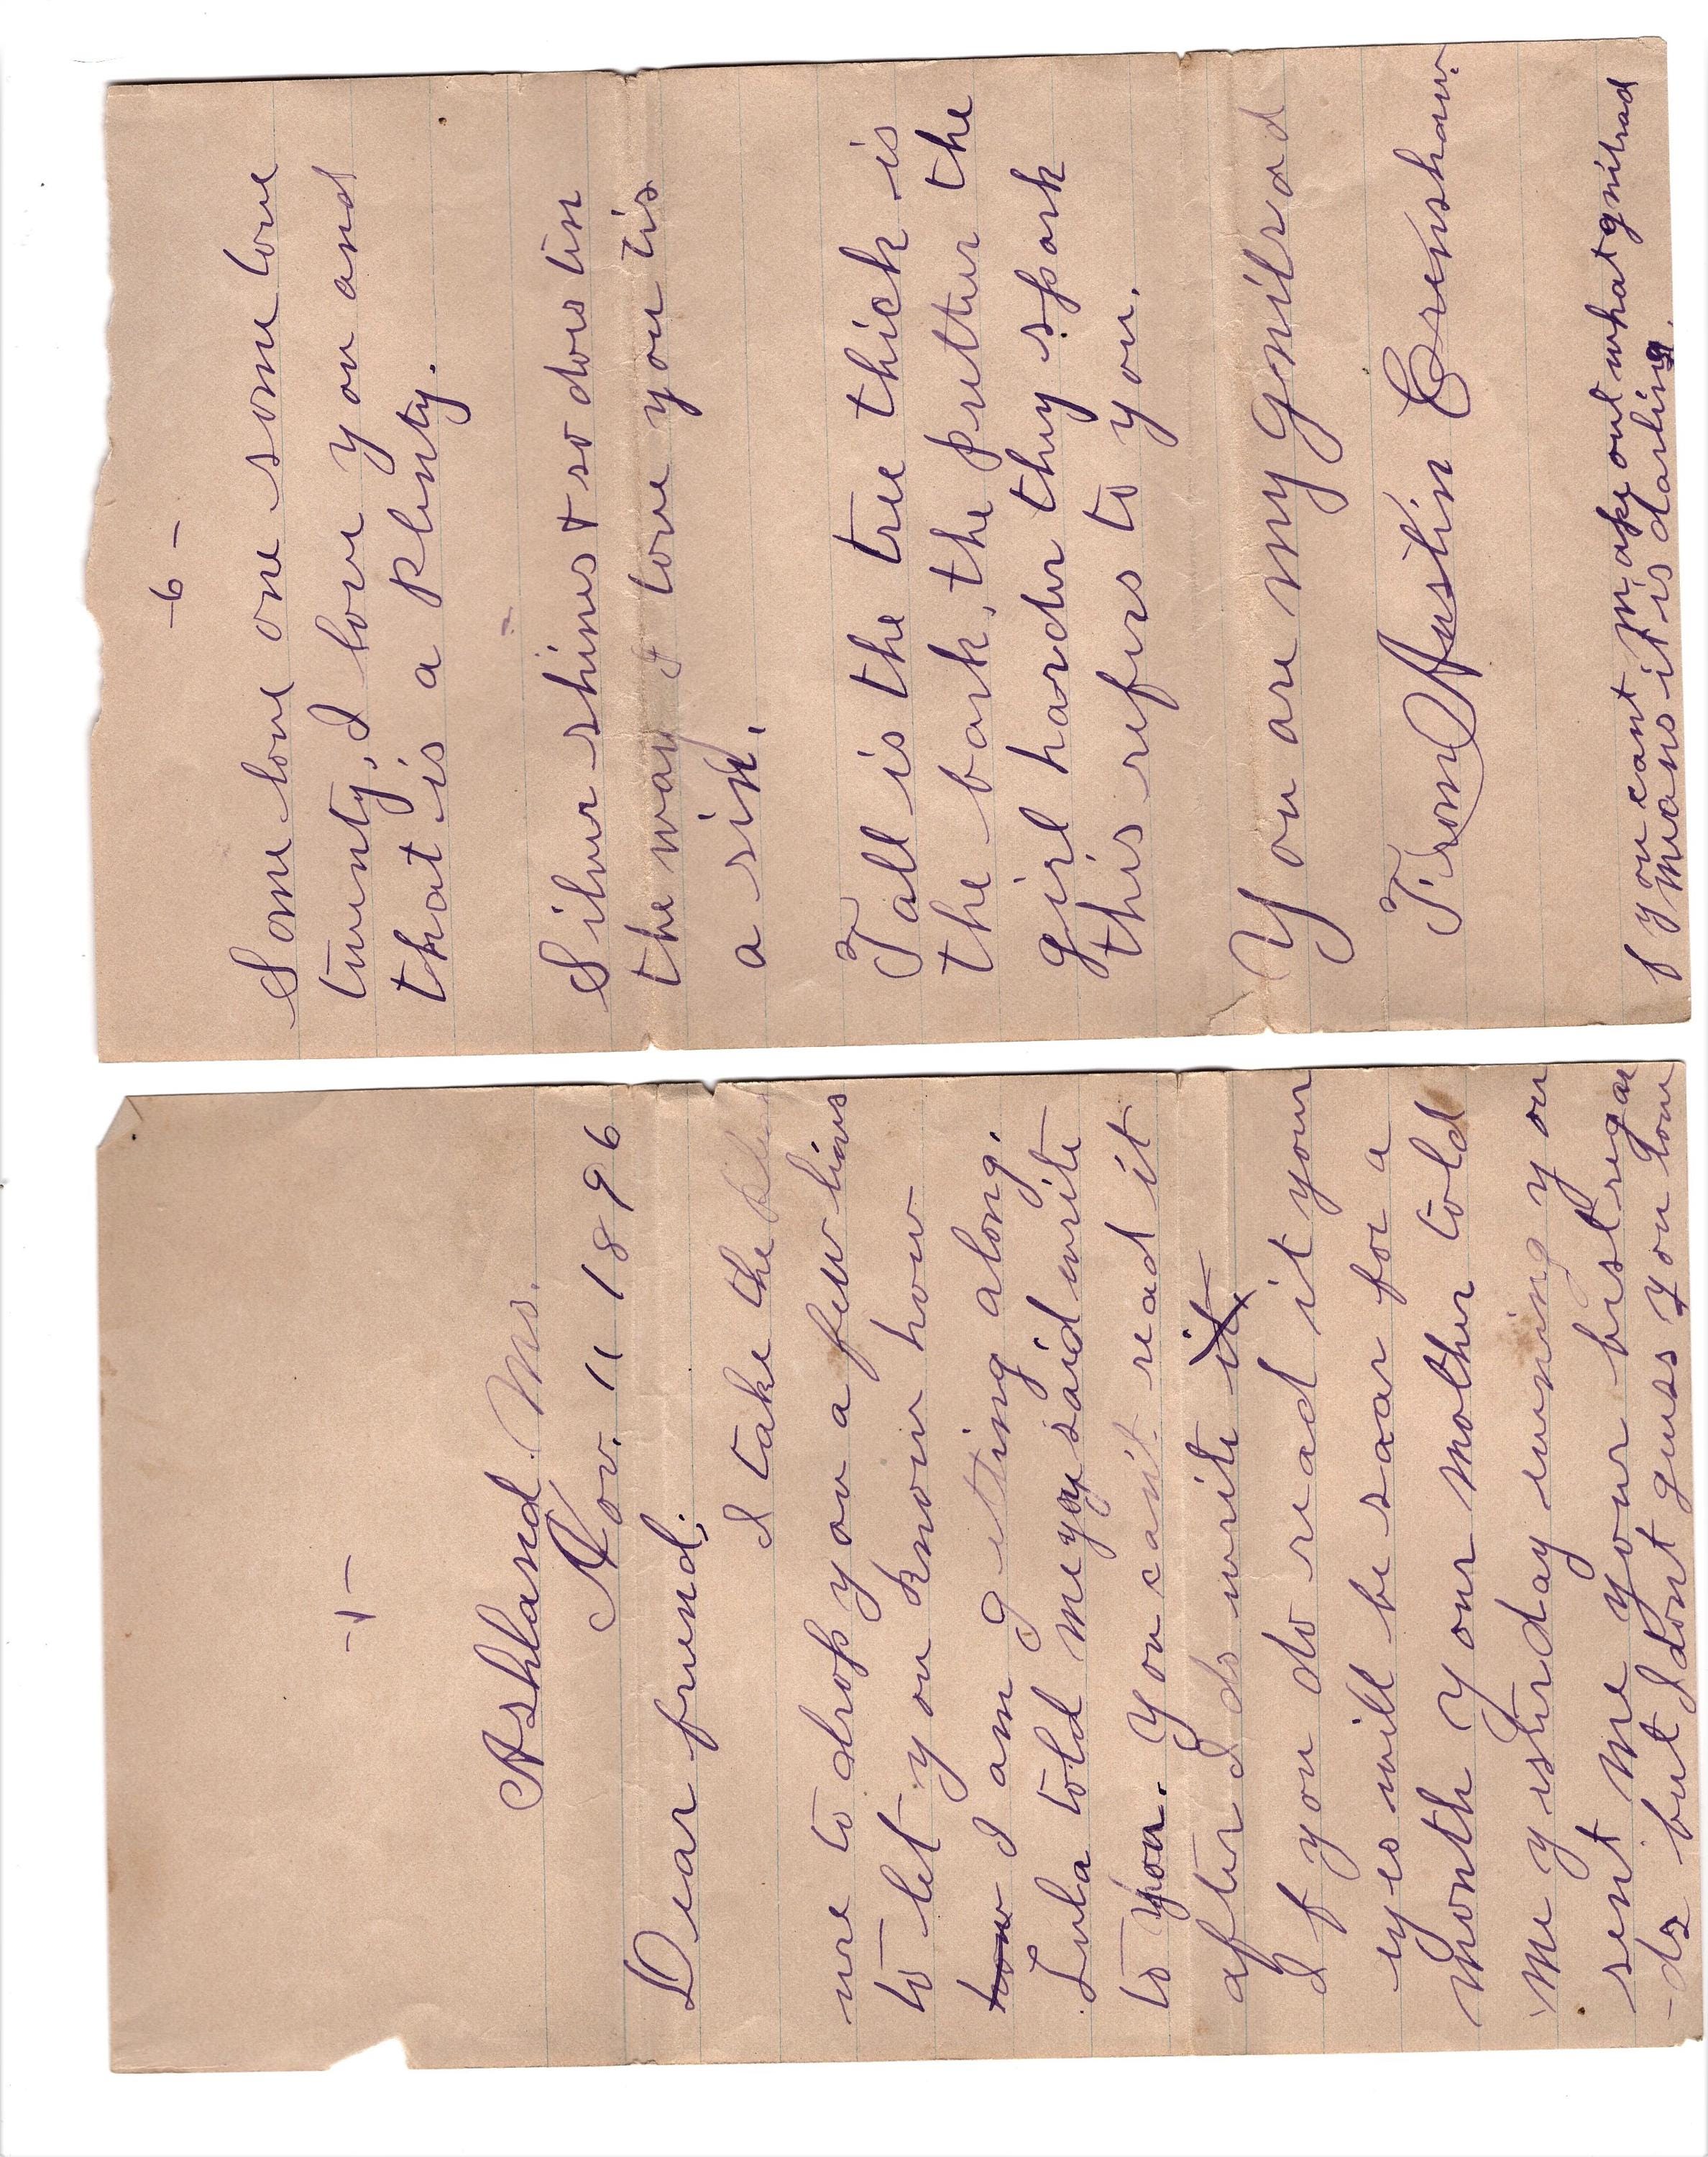 -1-
Ashland Ms.
Nov. 11 1896
Dear friend,
I take the
ure to drop you a few lines
to let you know how
how I am getting along.
Lula told me you said write
to you. You cant read it
after I do write it
If you do read it your
eyes will be soar for a
month Your mother told
me yisterday evening you
sent me your best regar
-ds but I dont guess you love
-6-
Some love one some love
twenty, I love you and
that is a plenty.
Silver shines & so does tin
the way I love you tis
a sin.
Tall is the tree thick is
the bark, the prettier the
girl harder they spark
this refers to you.
You are my gnilrad
From Austin Crenshaw.
f you cant make out what gnilrad
means it is darling.